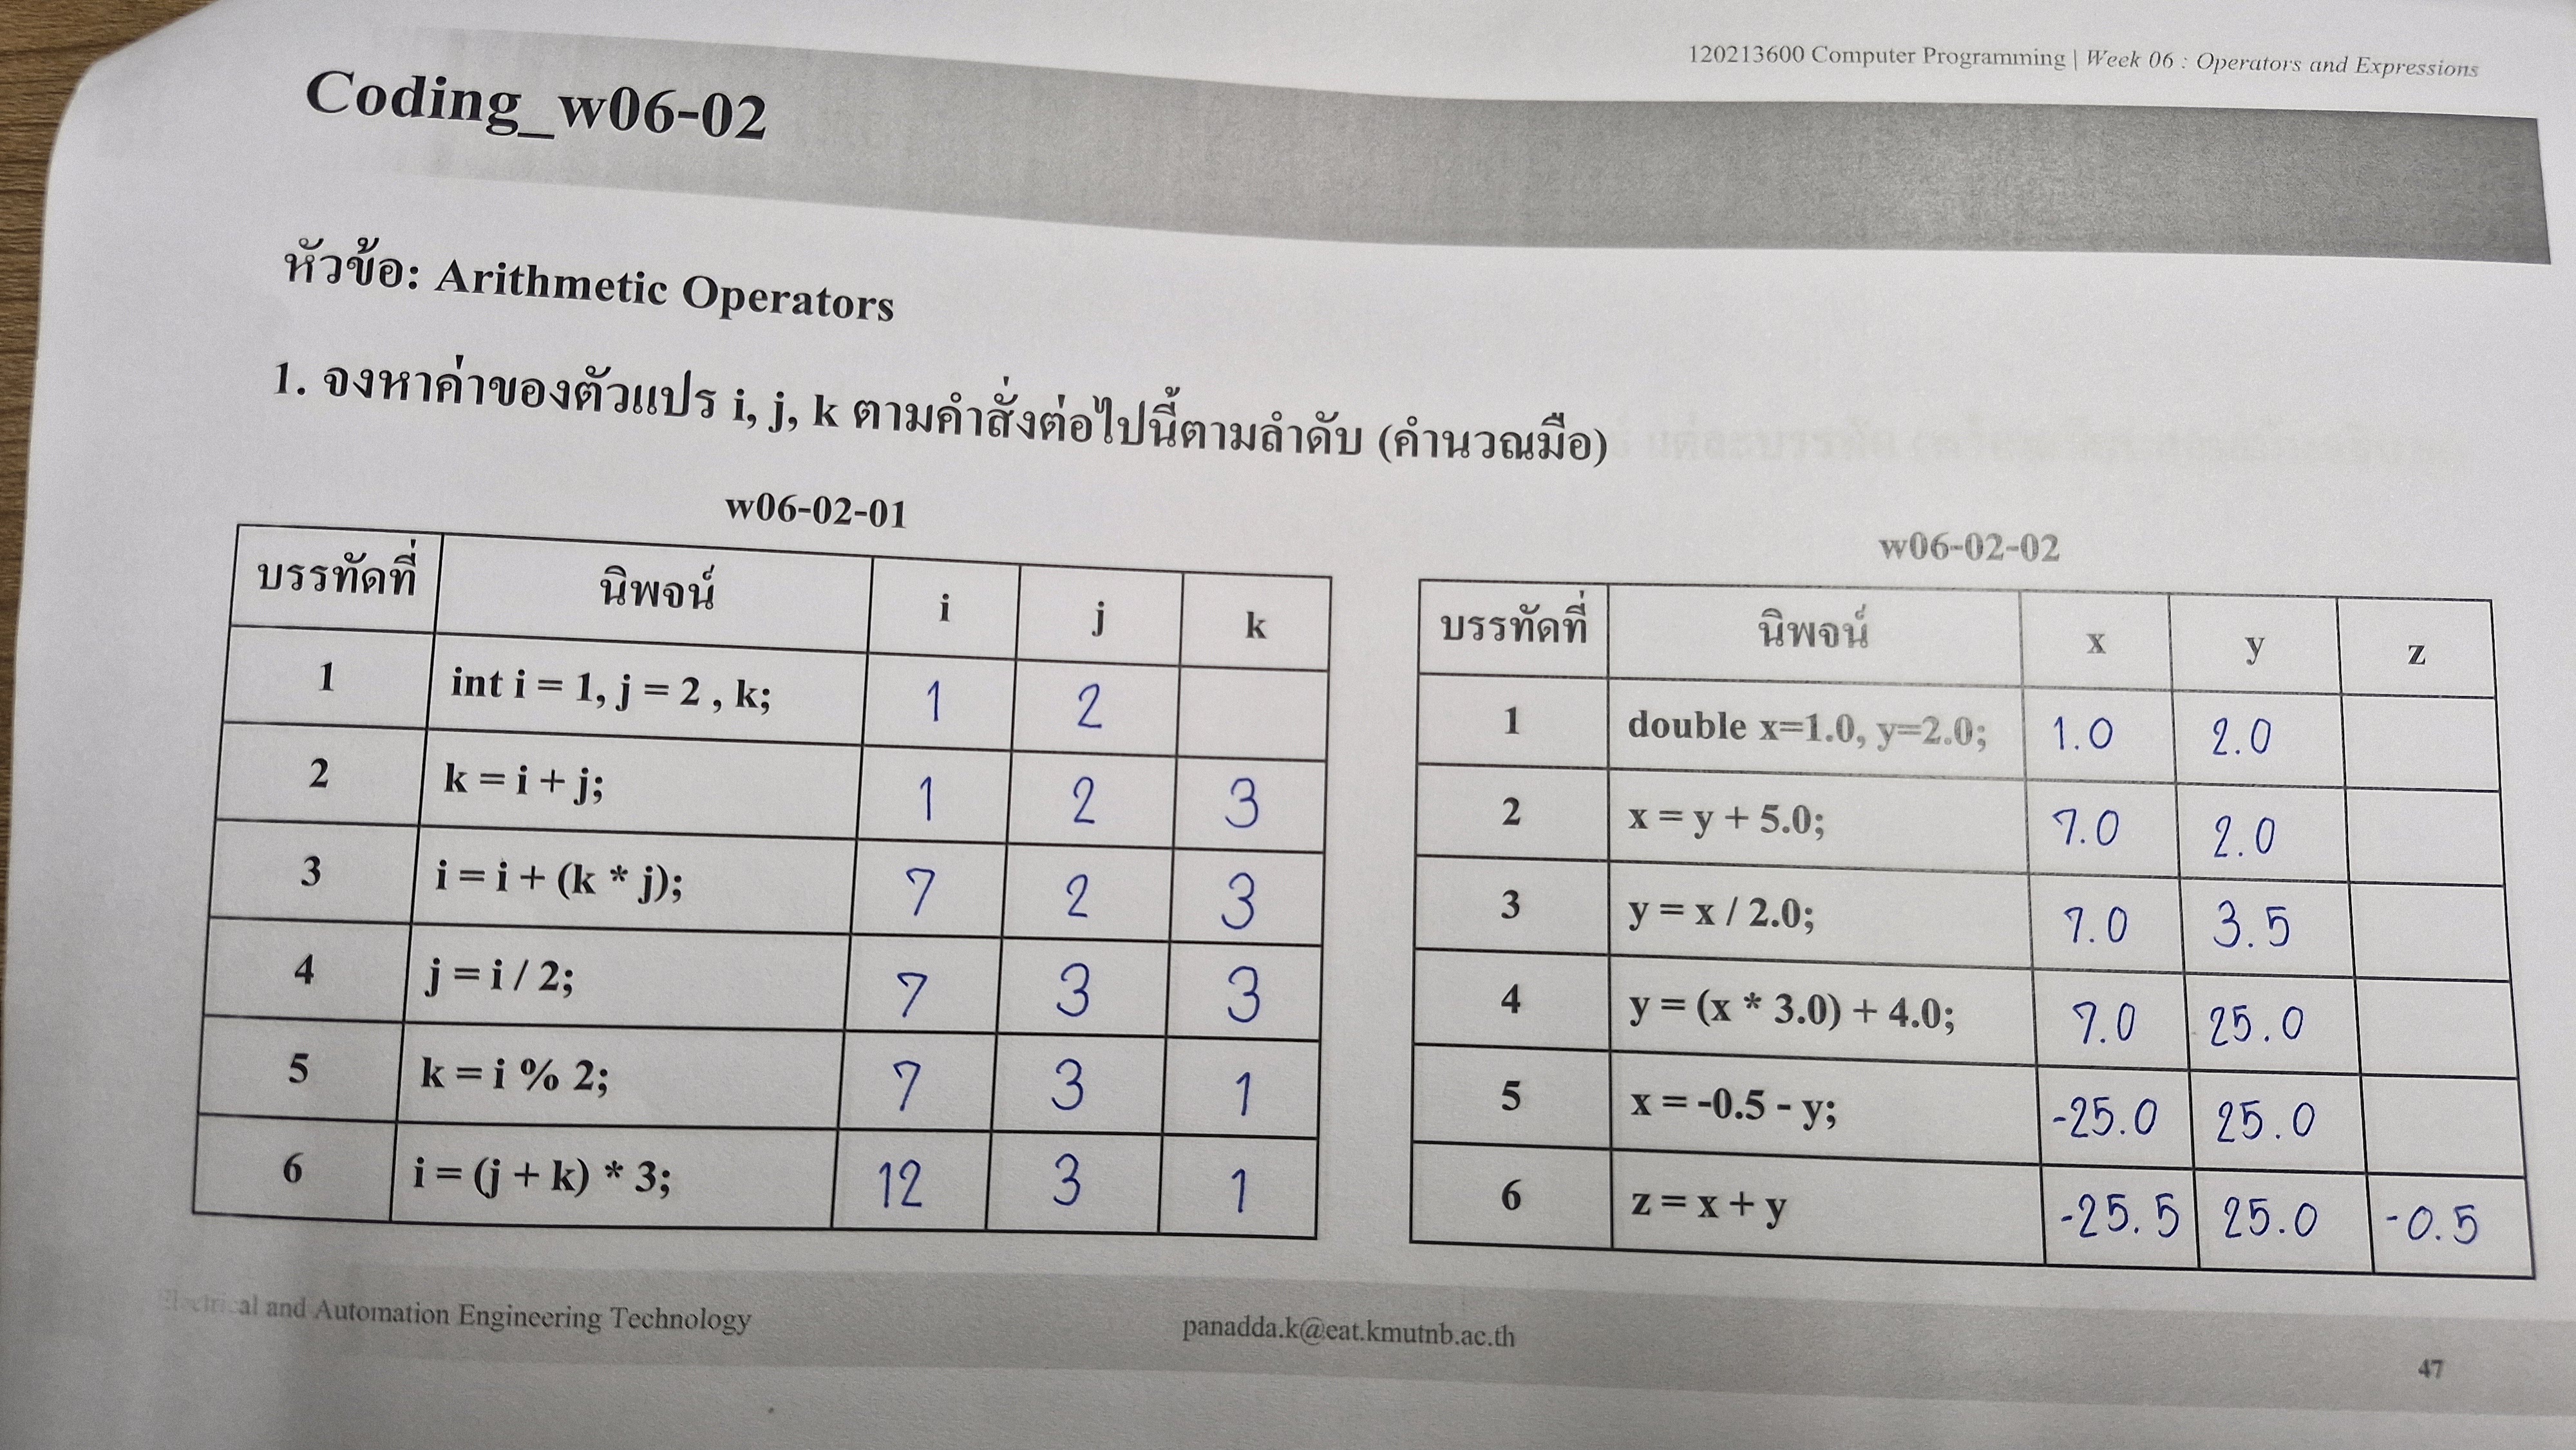 120213600 Computer Programming | Week 06 : Operators and Expressions
Coding_w06-02
หัวข้อ: Arithmetic Operators
1. จงหาค่าของตัวแปร i, j, k ตามคำสั่งต่อไปนี้ตามลำดับ (คำนวณมือ)
w06-02-01
บรรทัดที่ นิพจน์ i j k
1 int i = 1, j = 2 , k; 1 2
2 k = i + j; 1 2 3
3 i = i + (k * j); 7 2 3
4 j = i / 2; 7 3 3
5 k = i % 2; 7 3 1
6 i = (j + k) * 3; 12 3 1
w06-02-02
บรรทัดที่ นิพจน์ x y z
1 double x=1.0, y=2.0; 1.0 2.0
2 x = y + 5.0; 7.0 2.0
3 y = x / 2.0; 7.0 3.5
4 y = (x * 3.0) + 4.0; 7.0 25.0
5 x = -0.5 - y; -25.0 25.0
6 z = x + y -25.5 25.0 -0.5
Electrical and Automation Engineering Technology
panadda.k@eat.kmutnb.ac.th
47